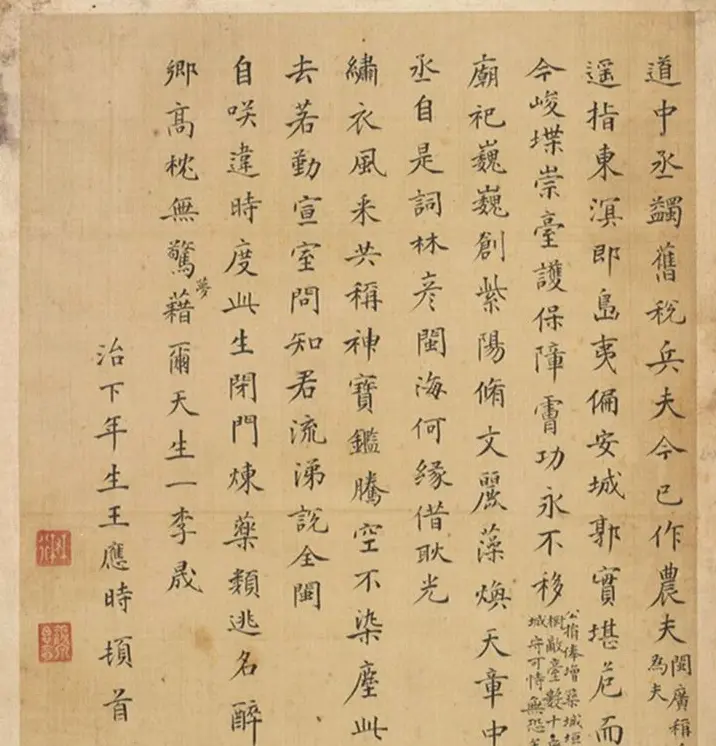 道中丞蠲舊稅兵夫今已作農夫
閩廣稱
為夫
遥指東溟即島夷偏安城郭實堪危而
今峻堞崇臺護保障膚功永不移
公捐俸增築城垣
敵臺數十
城守可恃無恐
廟祀巍巍創紫陽脩文麗藻煥天章中
丞自是詞林彦閩海何緣借耿光
繡衣風采共稱神寶鑑騰空不染塵此
去若勤宣室問知君流涕說全閩
自咲違時度此生閉門煉藥類逃名醉
鄉高枕無驚夢藉爾天生一李晟
治下年生王應時頓首